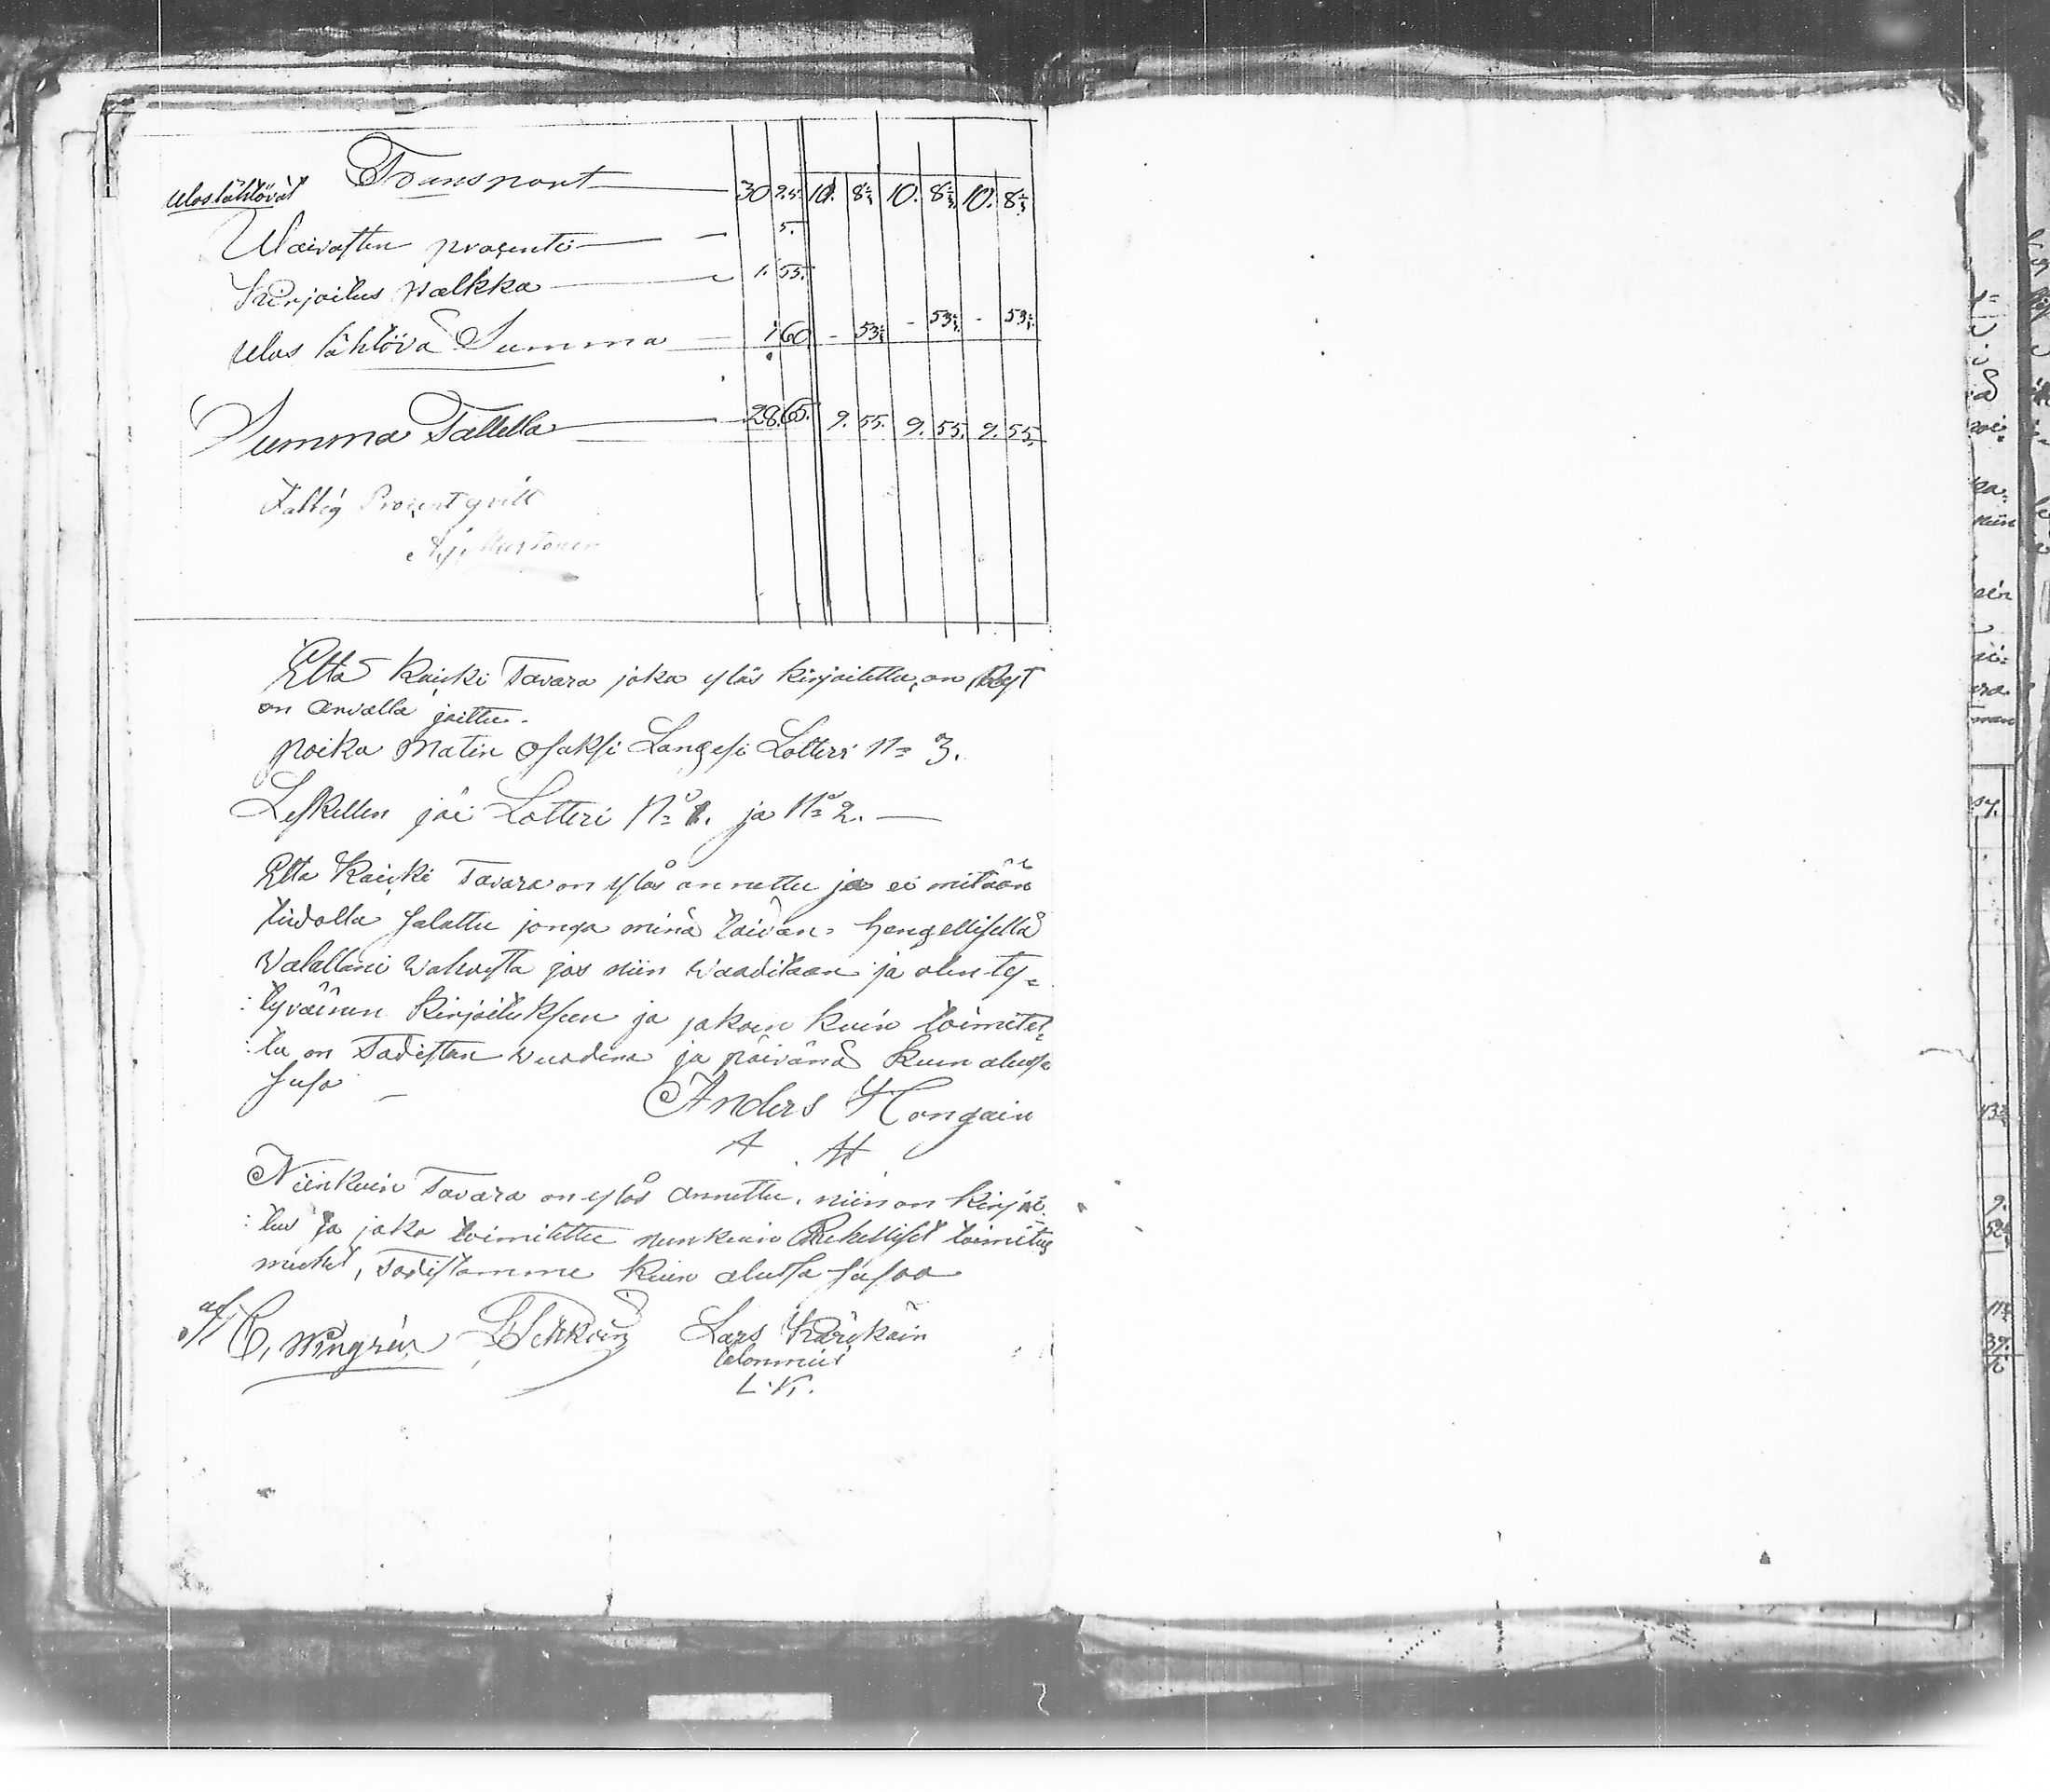 Transport 30 25. 10. 8⅓ 10. 8⅓ 10. 8⅓
Ulos lähtövät
Waivasten prosenti 5.
Kirjoitus palkka 1. 55.
Ulos lähtövä Summa 1 60 - 53⅓ - 53⅓ - 53⅓
Summa Tallella 28. 65. 9. 55. 9. 55. 9. 55.
Fattig Procent qvitt
Että Kaicki Tavara joka ylös kirjoitettu, on Nyt
on arvalla jaittu.
poika Matin Osaksi Langesi Lotteri N= 3.
Leskellen jäi Lotteri N= 1. ja N= 2.
Että Kaicki Tavara on ylös annettu ja ei mitään
tiidolla salattu jonga minä taidan hengellisellä
Walallani Wahvista jos niin Waaditaan ja olen ty=
:tyväinen Kirjoituksen ja jakoin kuin toimitet=
:tu on Todistan Wuodena ja päivänä Kuin alussa
Anders Hongain
A H
Niinkuin Tavara on ylös annettu, niin on kirjoi
:tus ja jako toimitettu niinkuin Rehelliset toimitus
miehet, Todistamme Kuin alussa
C, Wingren Lars Kärickäin
L. K.